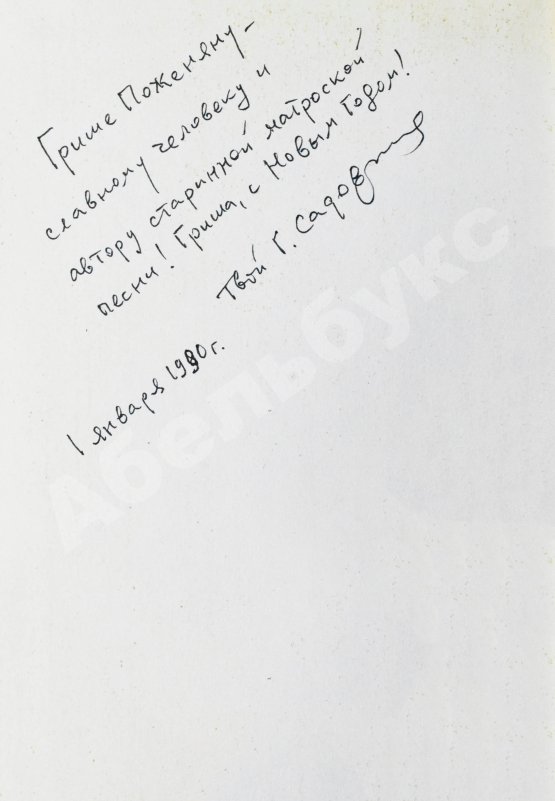 Грише Поженяну -
славному человеку и
автору старинной матроской
песни! Гриша, с Новым Годом!
Твой Г. Садовник
1 января 1990 г.
Абельбукс